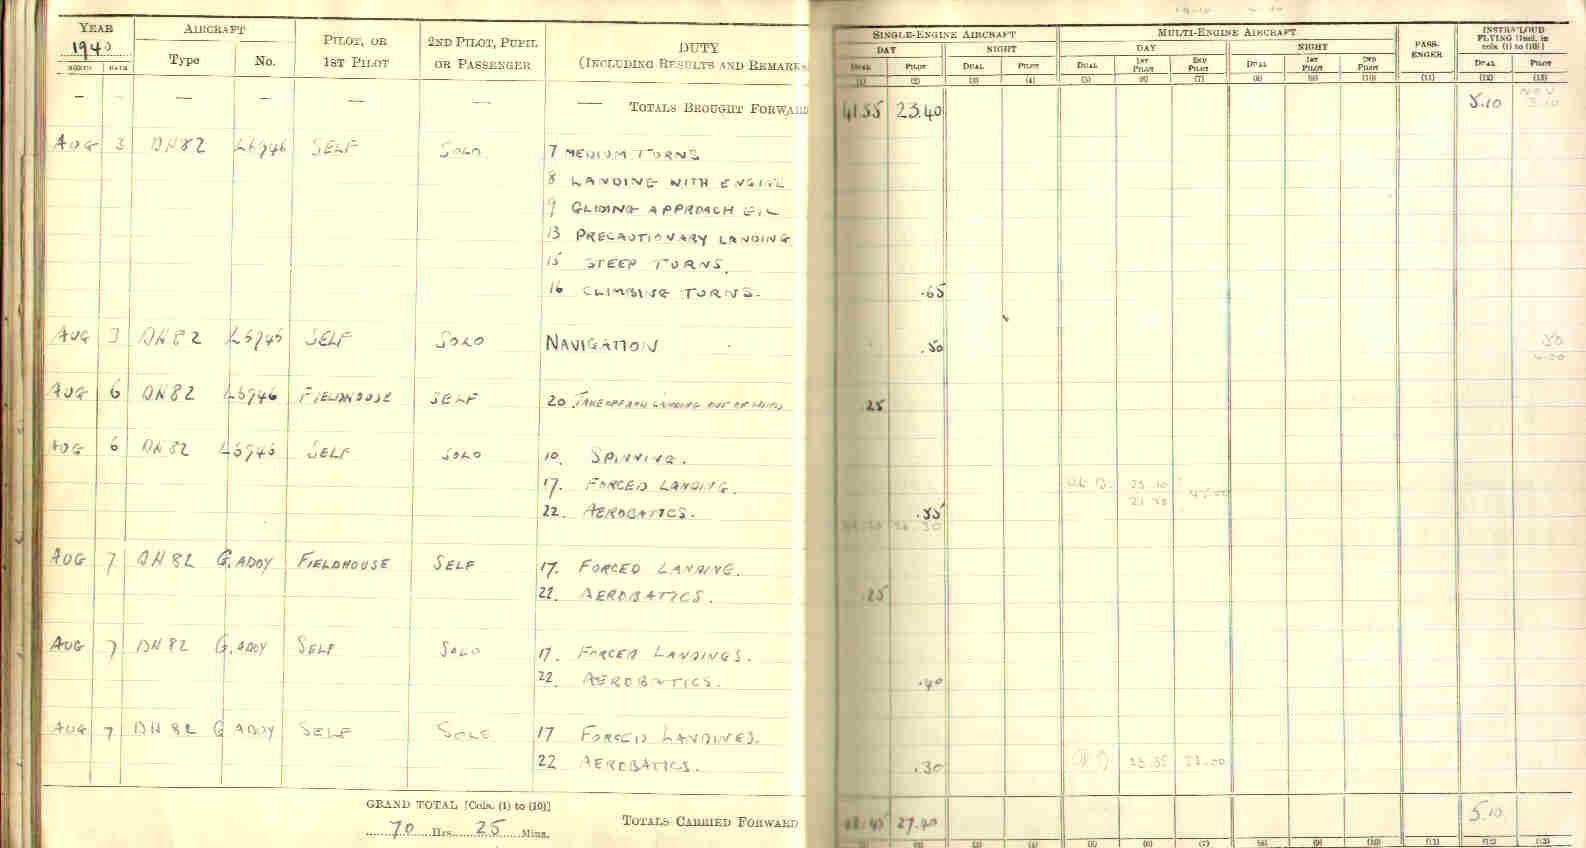 YEAR AIRCRAFT PILOT, OR 2ND PILOT, PUPIL DUTY SINGLE-ENGINE AIRCRAFT MULTI-ENGINE AIRCRAFT PASS- INSTR/CLOUD
1940 Type No. 1ST PILOT OR PASSENGER (INCLUDING RESULTS AND REMARKS DAY NIGHT DAY NIGHT ENGER FLYING [Incl. in
cols. (1) to (10)]
MONTH DATE DUAL PILOT DUAL PILOT DUAL 1ST PILOT 2ND PILOT DUAL 1ST PILOT 2ND PILOT DUAL PILOT
(1) (2) (3) (4) (5) (6) (7) (8) (9) (10) (11) (12) (13)
— — — — — — — TOTALS BROUGHT FORWARD 41.55 23.40 5.10 3.10
AUG 3 DH82 L6946 SELF SOLO 7 MEDIUM TURNS
8 LANDING WITH ENGINE
9 GLIDING APPROACH
13 PRECAUTIONARY LANDING
15 STEEP TURNS.
16 CLIMBING TURNS. .65
AUG 3 DH82 L6946 SELF SOLO NAVIGATION .50 50
4.00
AUG 6 DH82 L6946 FIELDHOUSE SELF 20 .25
AUG 6 DH82 L6946 SELF SOLO 10. SPINNING.
17. FORCED LANDING.
22. AEROBATICS. .35
AUG 7 DH82 G.ADOY FIELDHOUSE SELF 17. FORCED LANDING.
22. AEROBATICS. .25
AUG 7 DH82 G.ADOY SELF SOLO 17. FORCED LANDINGS.
22. AEROBATICS. .40
AUG 7 DH82 G ADOY SELF SOLO 17 FORCED LANDINGS.
22 AEROBATICS. .30
GRAND TOTAL [Cols. (1) to (10)]
70 Hrs. 25 Mins. TOTALS CARRIED FORWARD 27.40 5.10
(2) (3) (4) (5) (6) (7) (8) (9) (10) (11) (12) (13)